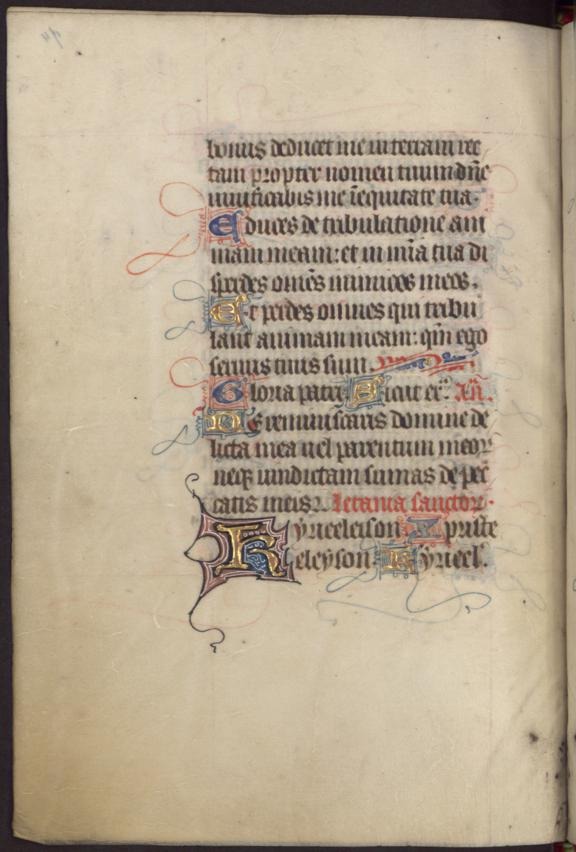 bonus deducet me in terram rec
tam propter nomen tuum dn̄e
uiuificabis me ī equitate tua.
Educes de tribulatione ani
mam meam: et in mīa tua di
sperdes om̄es inimicos meos.
Et perdes omnes qui tribu
lant animam meam: qm̄ ego
seruus tuus sum.
Gloria patri Sicut er̄. An̄.
Ne reminiscaris domine de
licta mea uel parentum meoꝝ
neqꝫ uindictam sumas de pec
catis meis. letania sanctoꝝ.
Kyrieeleison Xpriste
eleyson Kyrieel'.